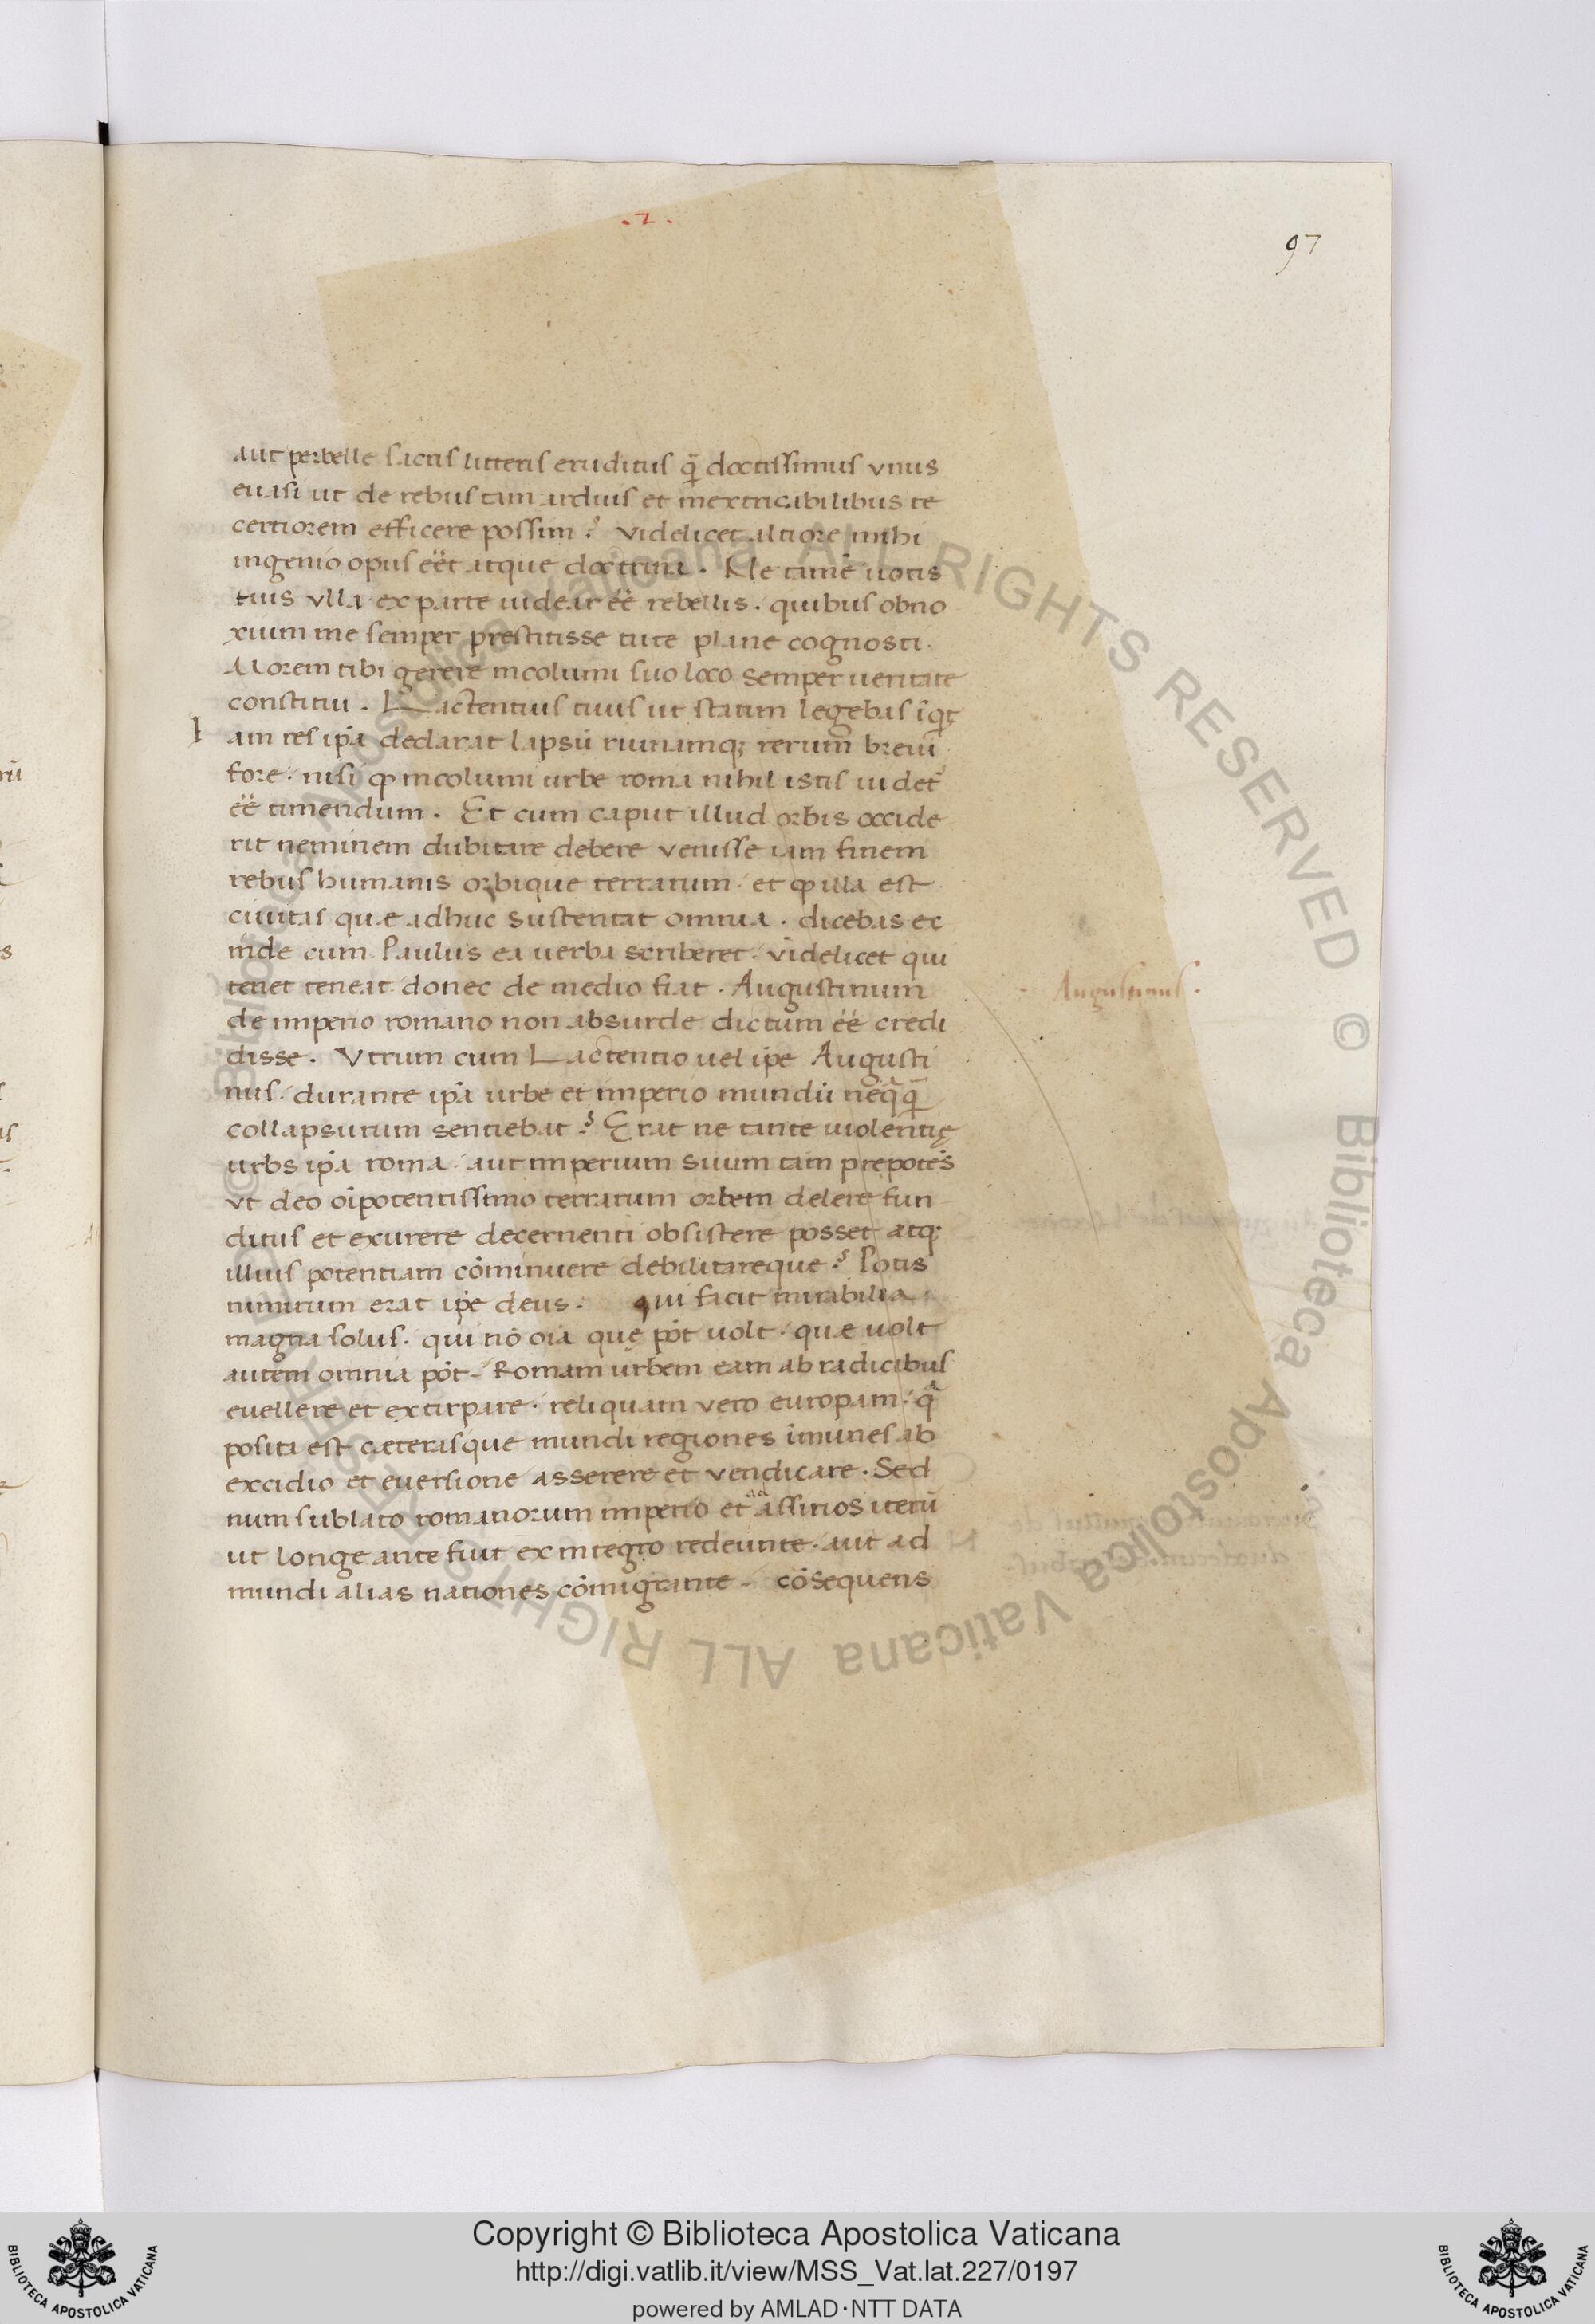 . 2 .
97
aut perbelle sacris litteris eruditus q̃ doctissimus vnus
euasi ut de rebus tam arduis et inextricabilibus te
certiorem efficere possim? Videlicet altiore mihi
ingenio opus eēt atque doctrina. Ne tamē uotis
tuis vlla ex parte uidear eē rebellis. quibus obno
xium me semper prestitisse tute plane cognosti.
Morem tibi gerere incolumi suo loco semper ueritate
constitui. Lactentius tuus ut statim legebas ĩqt
I am res ip̃a declarat lapsū ruinamq; rerum breui
fore. nisi ꝙ incolumi urbe roma nihil istis uidet̃
eē timendum. Et cum caput illud orbis occide
rit neminem dubitare debere venisse iam finem
rebus humanis orbique terrarum. et ꝙ illa est
ciuitas quae adhuc sustentat omnia. dicebas ex
inde cum Paulus ea uerba scriberet. videlicet qui
tenet teneat donec de medio fiat. Augustinum
de imperio romano non absurde dictum eē credi
disse. Vtrum cum Lactentio uel ip̃e Augusti
nus. durante ip̃a urbe et imperio mundū neq̃q̃
collapsurum sentiebat? Erat ne tante uiolentię
urbs ip̃a roma. aut imperium suum tam prepotēs
vt deo oĩpotentissimo terrarum orbem delere fun
ditus et exurere decernenti obsistere posset atq;
illius potentiam cōminuere debilitareque? Potis
nimirum erat ip̃e deus. qui facit mirabilia
magna solus. qui nō oīa quę pōt uolt. quae uolt
autem omnia pōt. Romam urbem eam ab radicibus
euellere et extirpare. reliquam vero europam. q̃
posita est caeterisque mundi regiones īmunes ab
excidio et euersione asserere et vendicare. Sed
num sublato romanorum imperio et ad assirios iterū
ut longe ante fuit ex integro redeunte. aut ad
mundi alias nationes cōmigrante. cōsequens
Augustinus.
Copyright © Biblioteca Apostolica Vaticana
http://digi.vatlib.it/view/MSS_Vat.lat.227/0197
powered by AMLAD·NTT DATA